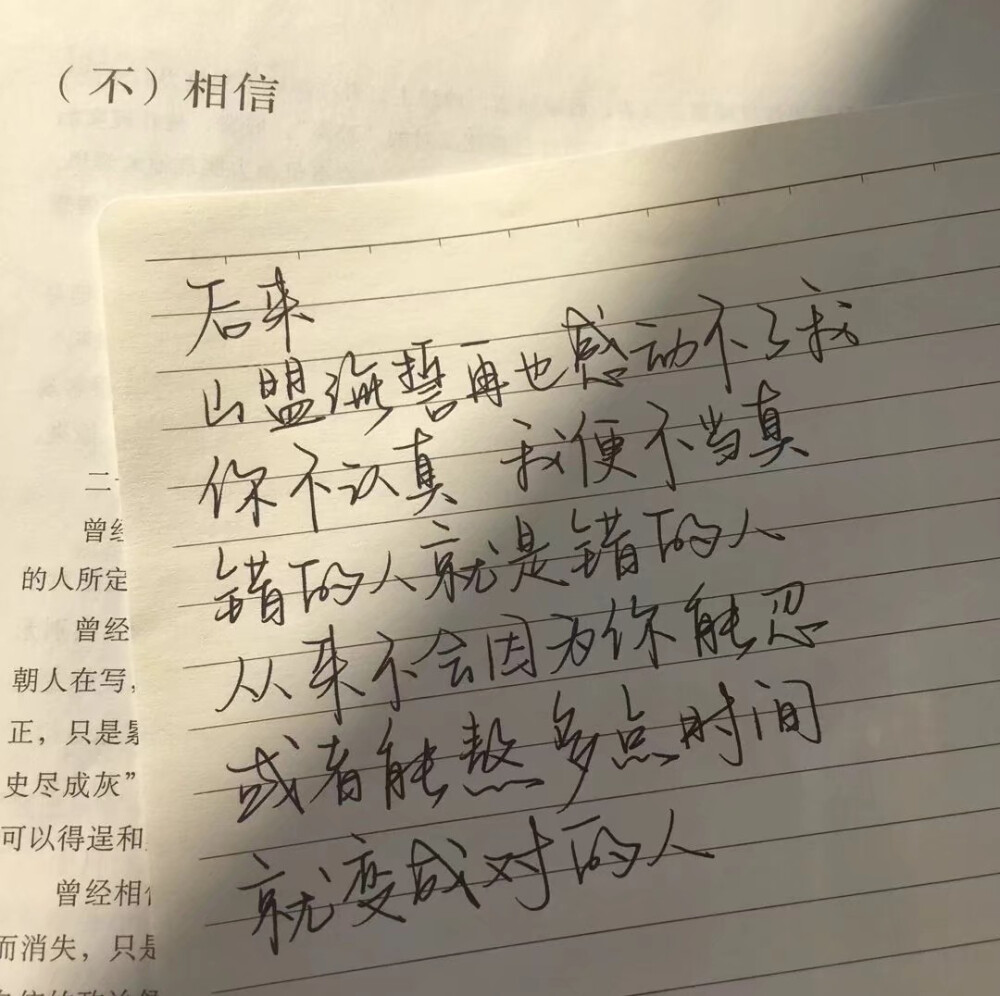 （不）相信
后来
山盟海誓再也感动不了我
你不认真 我便不当真
错的人就是错的人
从来不会因为你能忍
或者能熬多点时间
就变成对的人
二
曾经
的人所定
曾经
朝人在写，
正，只是累
史尽成灰”
可以得逞和
曾经相信
而消失，只是